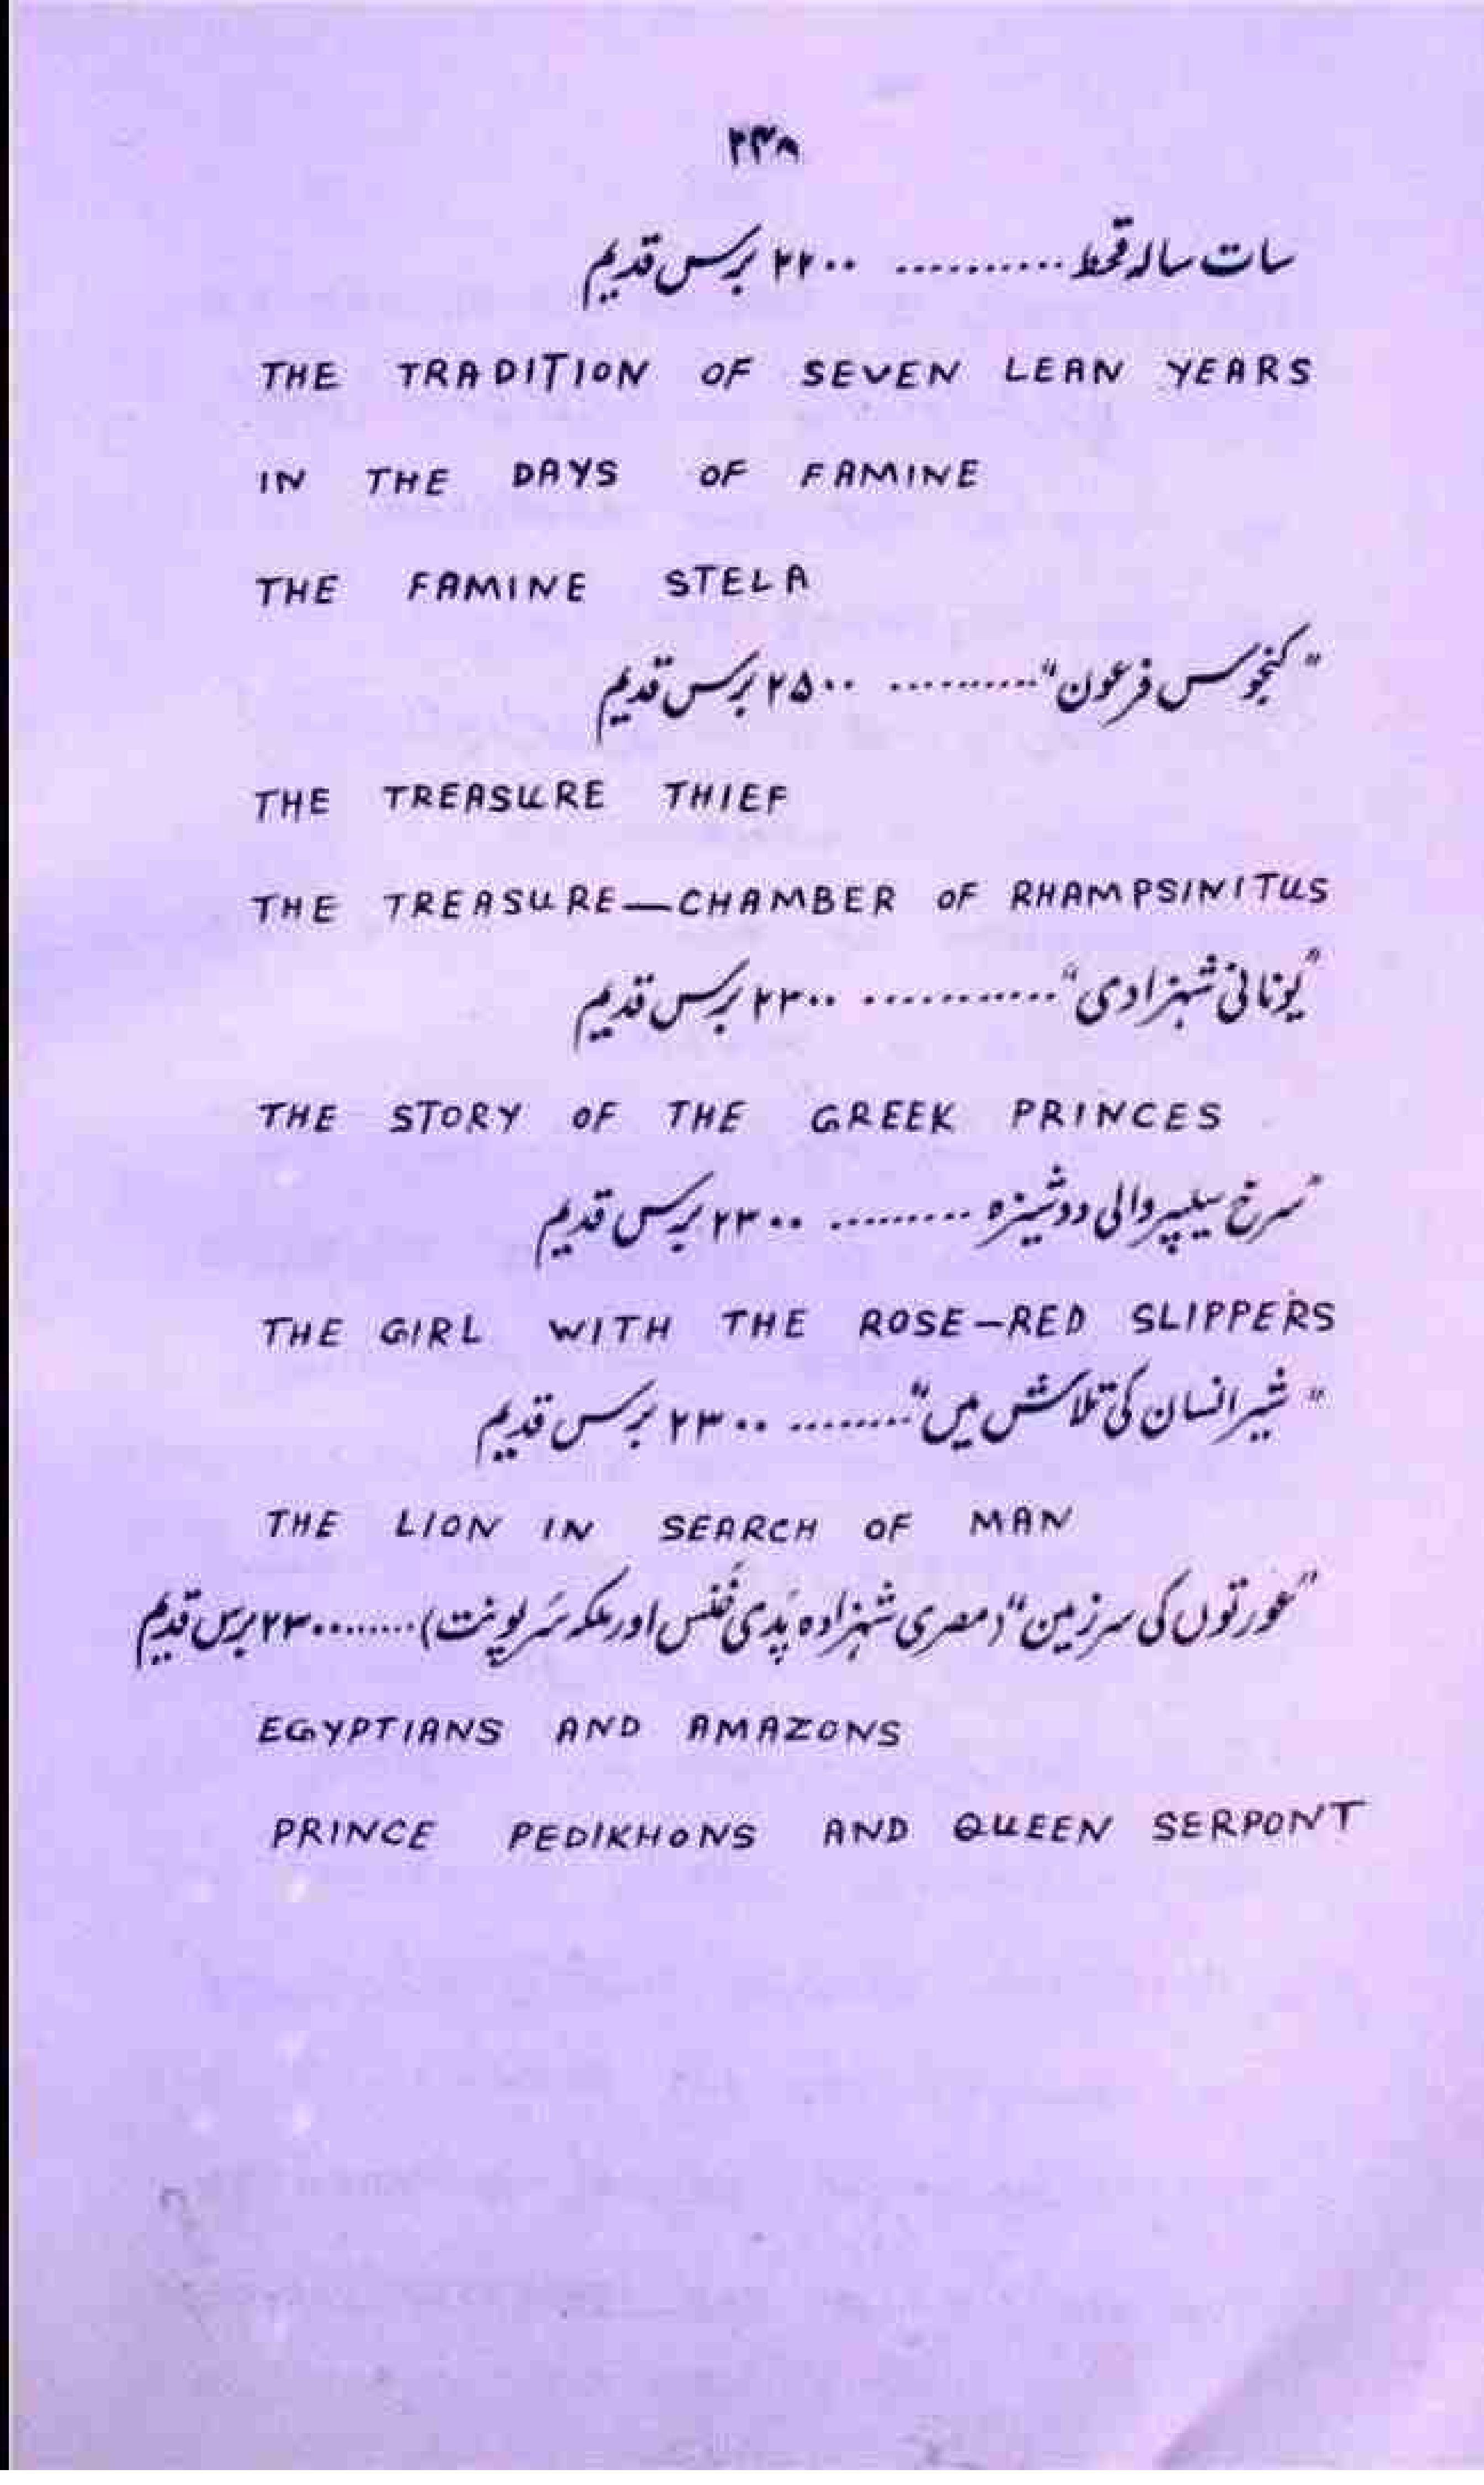 ۲۳۸
سات سالہ قحط ........... ۲۲۰۰ برس قدیم
THE TRADITION OF SEVEN LEAN YEARS
IN THE DAYS OF FAMINE
THE FAMINE STELA
"کنجوس فرعون" ........... ۲۵۰۰ برس قدیم
THE TREASURE THIEF
THE TREASURE—CHAMBER OF RHAMPSINITUS
"یونانی شہزادی" ............ ۲۳۰۰ برس قدیم
THE STORY OF THE GREEK PRINCES
سرخ سیلیپر والی دوشیزہ ......... ۲۳۰۰ برس قدیم
THE GIRL WITH THE ROSE—RED SLIPPERS
"شیر انسان کی تلاش میں" ........ ۲۳۰۰ برس قدیم
THE LION IN SEARCH OF MAN
"عورتوں کی سرزمین" (مصری شہزادہ پَدی خَنس اور ملکہ سَرپونت) ........ ۲۳۰۰ برس قدیم
EGYPTIANS AND AMAZONS
PRINCE PEDIKHONS AND QUEEN SERPONT